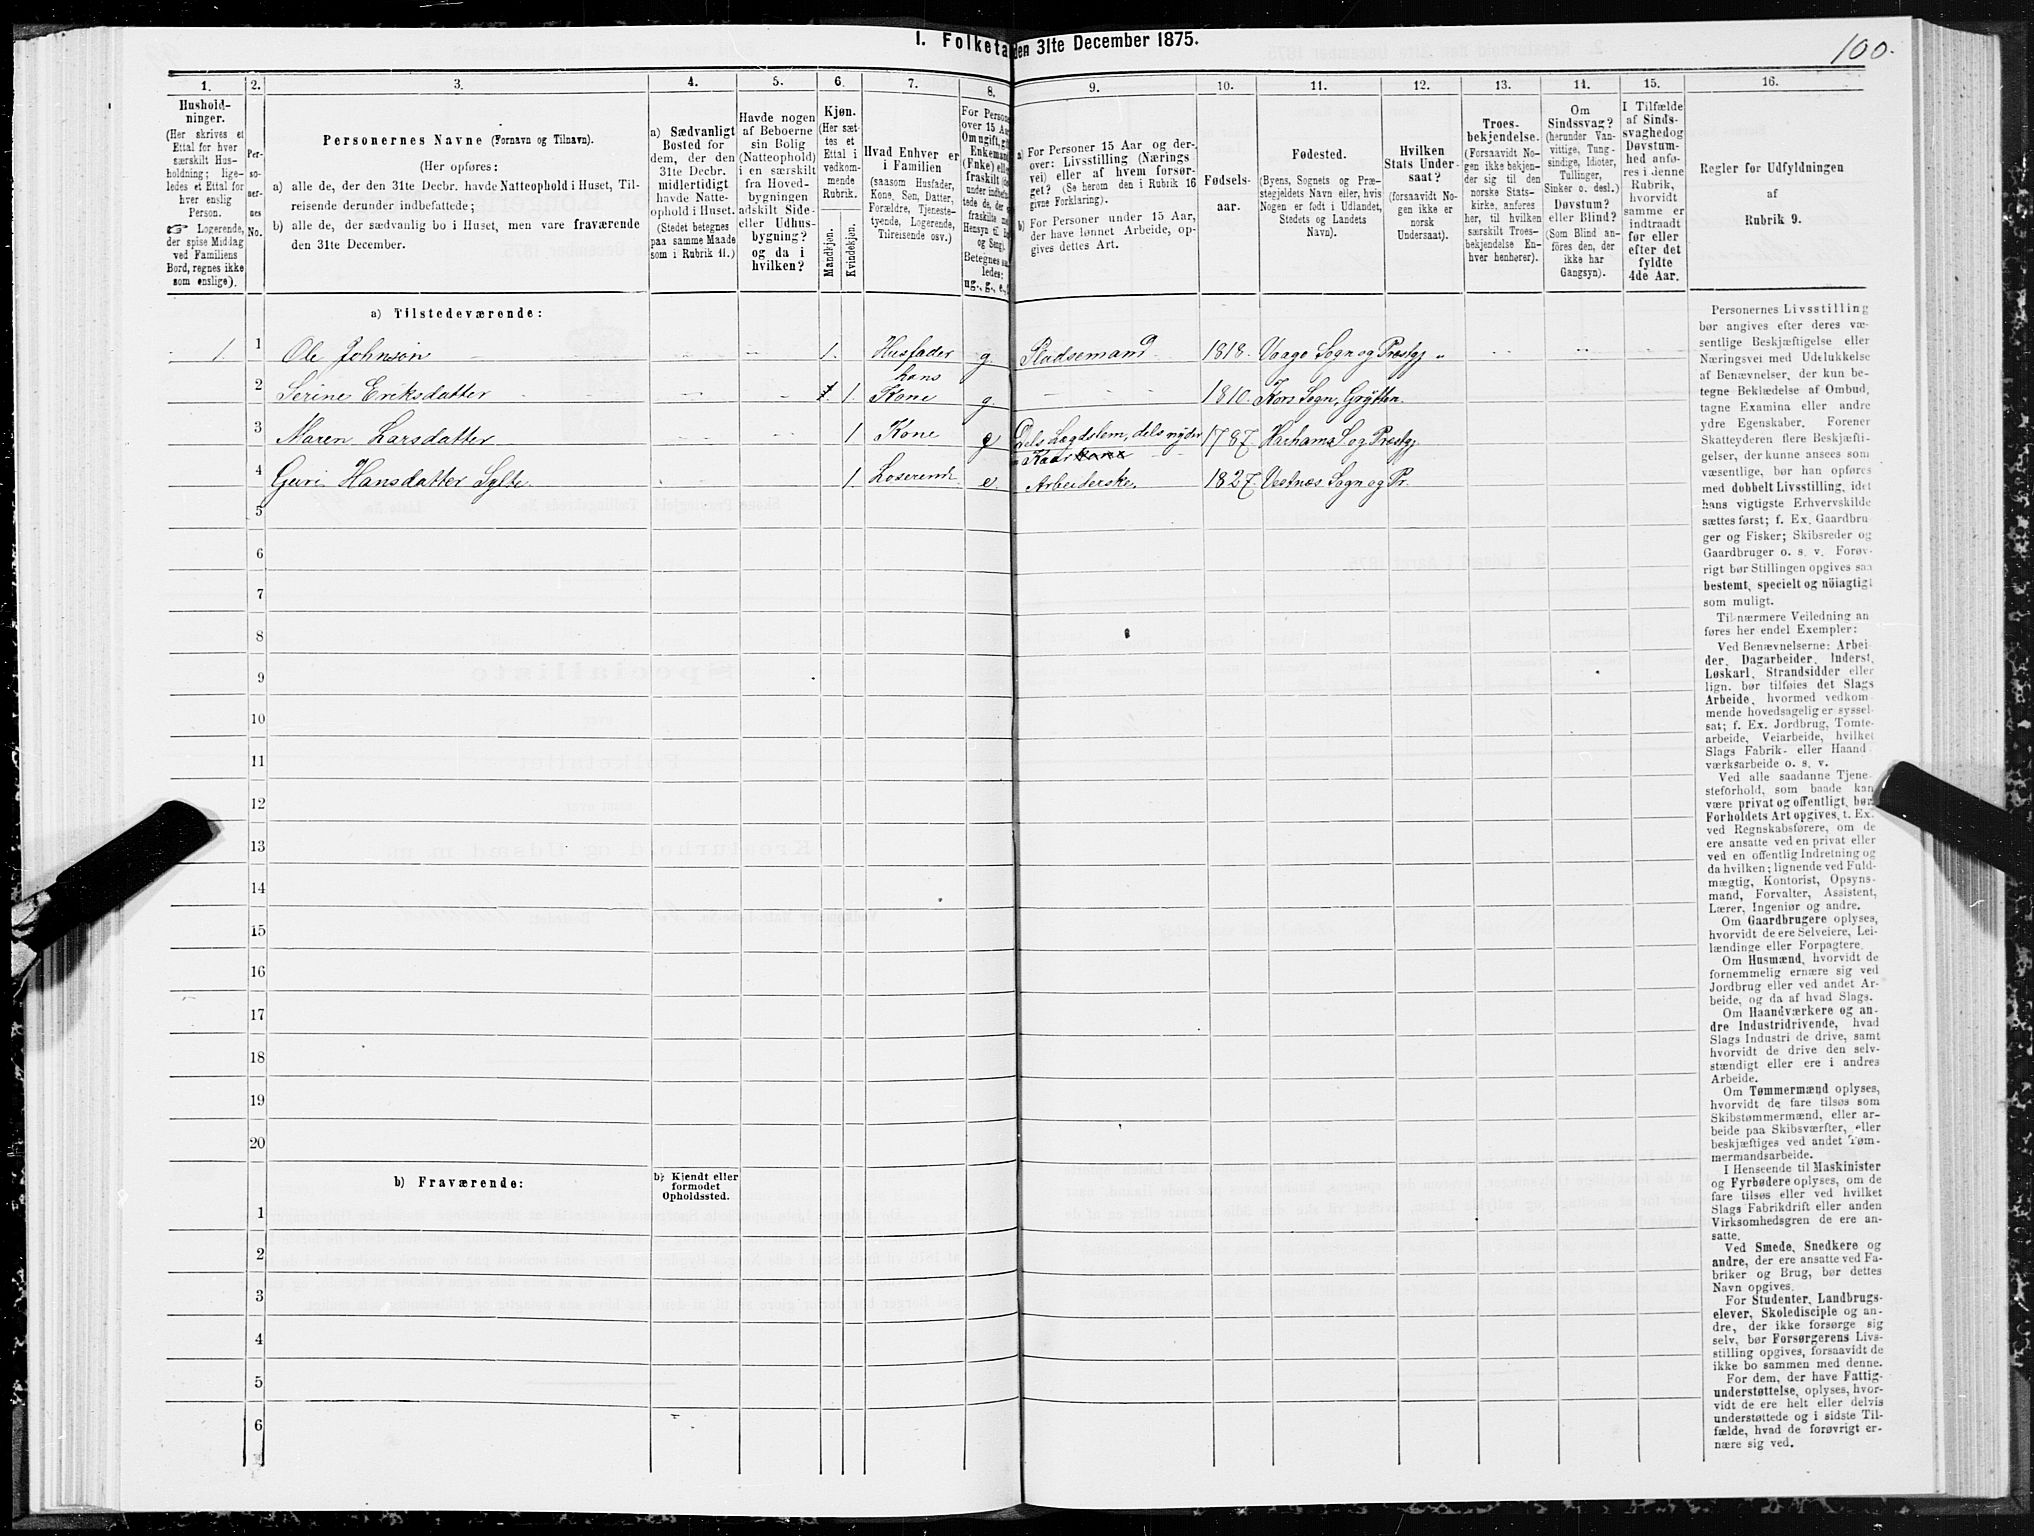 I. Folketa den 31te December 1875.
100.
1. 2. 3. 4. 5. 6. 7. 8. 9. 10. 11. 12. 13. 14. 15. 16.
Hushold-
ninger.
(Her skrives et
Ettal for hver
særskilt Hus-
holdning; lige-
ledes et Ettal for
hver enslig
Person.
☞ Logerende,
der spise Middag
ved Familiens
Bord, regnes ikke
som enslige).
Per-
so-
ner-
nes
No.
Personernes Navne (Fornavn og Tilnavn).
(Her opføres:
a) alle de, der den 31te Decbr. havde Natteophold i Huset, Til-
reisende derunder indbefattede;
b) alle de, der sædvanlig bo i Huset, men vare fraværende
den 31te December.
a) Sædvanligt
Bosted for
dem, der den
31te Decbr.
midlertidigt
havde Natte-
ophold i Huset.
(Stedet betegnes
paa samme Maade
som i Rubrik 11.)
Havde nogen
af Beboerne
sin Bolig
(Natteophold)
i en særskilt
fra Hoved-
bygningen
adskilt Side-
eller Udhus-
bygning?
og da i
hvilken?
Kjøn.
(Her sæt-
tes et
Ettal i
vedkom-
mende
Rubrik.
Mandkjøn.
Kvindekjøn.
Hvad Enhver er
i Familien
(saasom Husfader,
Kone, Søn, Datter,
Forældre, Tjeneste-
tyende, Logerende,
Tilreisende osv.)
For Persone
over 15 Aa
Om ugift, gi
Enkemand
(Enke) elle
fraskilt (de
under indbefa
tede de, der e
fraskilte me
Hensyn til B
og Seng).
Betegnes sa
ledes:
ug., g., e.,
a) For Personer 15 Aar og der-
over: Livsstilling (Nærings-
vei) eller af hvem forsør-
get? (Se herom den i Rubrik 16
givne Forklaring).
b) For Personer under 15 Aar,
der have lønnet Arbeide, op-
gives dettes Art.
Fødsels-
aar.
Fødested.
(Byens, Sognets og Præ-
stegjeldets Navn eller, hvis
Nogen er født i Udlandet,
Stedets og Landets
Navn).
Hvilken
Stats Under-
saat?
(forsaavidt No-
gen ikke er
norsk
Undersaat).
Troes-
bekjendelse.
(Forsaavidt No-
gen ikke bekjen-
der sig til den
norske Stats-
kirke, anføres
her, til hvilken
særskilt Troes-
bekjendelse En-
hver henhører).
Om
Sindssvag?
(herunder Van-
vittige, Tung-
sindige, Idioter,
Tullinger,
Sinker o. desl.)
Døvstum?
eller Blind?
(Som Blind an-
føres den, der
ikke har
Gangsyn).
I Tilfælde
af Sinds-
svaghed og
Døvstum-
hed anfø-
res i denne
Rubrik,
hvorvidt
samme er
indtraadt
før eller
efter det
fyldte
4de Aar.
Regler for Udfyldningen
af
Rubrik 9.
a) Tilstedeværende:
1. 1 Ole Johnson 1. Husfader g. Pladsemand 1818. Vaage Sogn og Præstgj
2 Serine Eriksdatter 1. hans Kone g. 1810. Kors Sogn, Grytten.
3 Maren Larsdatter 1 Kone e Dels Lægdslem, dels nyder 1787 Harhams S og Præstgj
Kaar
4 Guri Hansdatter Sylte. 1. Loserende e. Arbeiderske. 1827. Vestnæs Sogn og Pr.
5
6
7
8
9
10
11
12
13
14
15
16
17
18
19
20
b) Fraværende:
b) Kjendt eller
formodet
Opholdssted.
1
2
3
4
5
6
Personernes Livsstilling
bør angives efter deres væ-
sentlige Beskjæftigelse eller
Næringsvei med Udelukkelse
af Benævnelser, der kun be-
tegne Beklædelse af Ombud,
tagne Examina eller andre
ydre Egenskaber. Forener
Skatteyderen flere Beskjæfti-
gelser, der kunne ansees som
væsentlige, bør han opføres
med dobbelt Livsstilling, idet
hans vigtigste Erhvervskilde
sættes først; f. Ex. Gaardbru-
ger og Fisker; Skibsreder og
Gaardbruger o. s. v. Forøv-
rigt bør Stillingen opgives saa
bestemt, specielt og nöiagtigt
som muligt.
Til nærmere Veiledning an-
føres her endel Exempler:
Ved Benævnelserne: Arbei-
der, Dagarbeider, Inderst,
Løskarl, Strandsidder eller
lign. bør tilføies det Slags
Arbeide, hvormed vedkom-
mende hovedsagelig er syssel-
sat; f. Ex. Jordbrug, Tomte-
arbeide, Veiarbeide, hvilket
Slags Fabrik- eller Haand-
værksarbeide o. s. v.
Ved alle saadanne Tjene-
steforhold, som baade kan
være privat og offentligt, bør
Forholdets Art opgives, t. Ex.
ved Regnskabsførere, om de
ere ansatte ved en privat eller
ved en offentlig Indretning og
da hvilken; lignende ved Fuld-
mægtig, Kontorist, Opsyns-
mand, Forvalter, Assistent,
Lærer, Ingeniør og andre.
Om Gaardbrugere oplyses,
hvorvidt de ere Selveiere, Lei-
lændinge eller Forpagtere.
Om Husmænd, hvorvidt de
fornemmelig ernære sig ved
Jordbrug eller ved andet Ar-
beide, og da af hvad Slags.
Om Haandværkere og an-
dre Industridrivende, hvad
Slags Industri de drive, samt
hvorvidt de drive den selv-
stændigt eller ere i andres
Arbeide.
Om Tømmermænd oplyses,
hvorvidt de fare tilsøs som
Skibstømmermænd, eller ar-
beide paa Skibsværfter, eller
beskjæftiges ved andet Tøm-
mermandsarbeide.
I Henseende til Maskinister
og Fyrbødere oplyses, om de
fare tilsøs eller ved hvilket
Slags Fabrikdrift eller anden
Virksomhedsgren de ere an-
satte.
Ved Smede, Snedkere og
andre, der ere ansatte ved Fa-
briker og Brug, bør dettes
Navn opgives.
For Studenter, Landbrugs-
elever, Skoledisciple og an-
dre, der ikke forsørge sig
selv, bør Forsørgerens Livs-
stilling opgives, forsaavidt de
ikke bo sammen med denne.
For dem, der have Fattig-
understøttelse, oplyses, hvor-
vidt de ere helt eller delvis
understøttede og i sidste Til-
fælde, hvad de forøvrigt er-
nære sig ved.